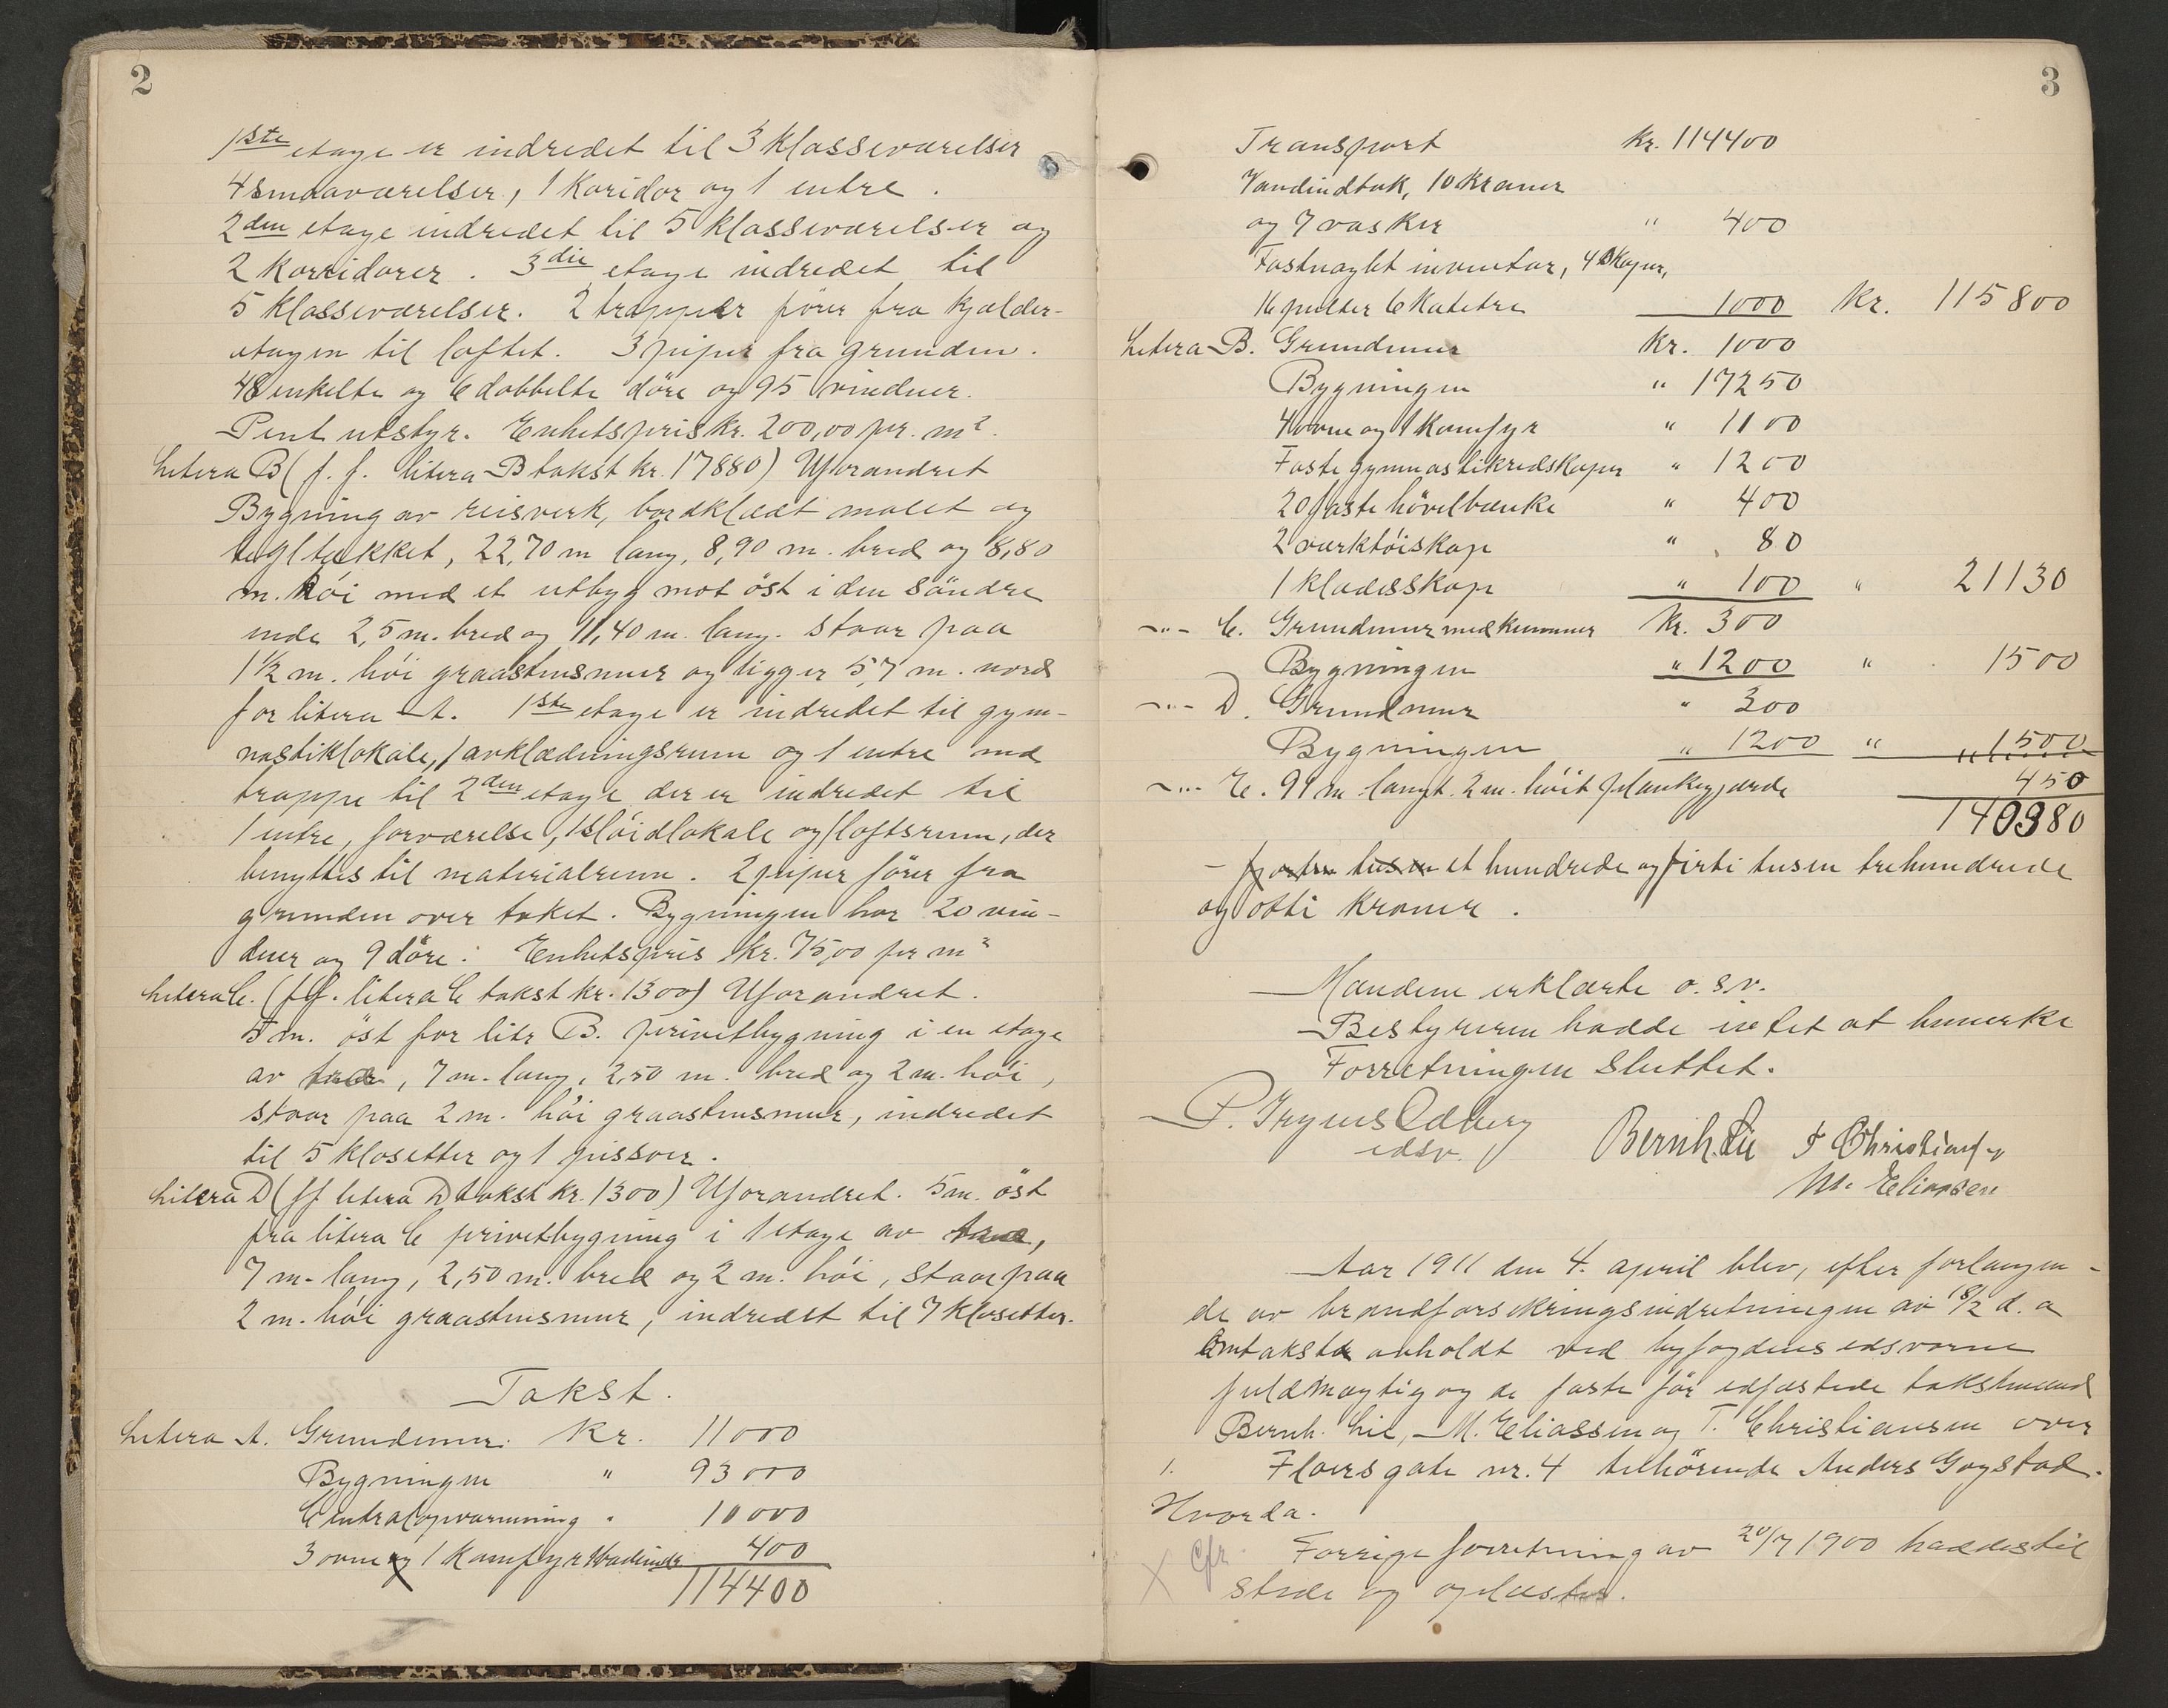 2
1ste etage er indredet til 3 klasseværelser
4 smaaværelser, 1 koridor og 1 entre.
2den etage indredet til 5 klasseværelser og
2 korridorer. 3die etage indredet til
5 klasseværelser. 2 trapper förer fra kjælder-
etagen til loftet. 3 piper fra grunden.
48 enkelte og 6 dobbelte döre og 95 vinduer.
Pent utstyr. Enhetspris kr. 200,00 pr. m².
Litera B (f. f. litera B takst kr. 17880) Uforandret
Bygning av reisverk, bordklædt malet og
tegltækket, 22,70 m lang, 8,90 m. bred og 8,80
m. höi med et utbyg mot öst i den söndre
ende 2,5 m. bred og 11,40 m. lang. Staar paa
1½ m. höi graastensmur og ligger 5,7 m. nord
for litera A. 1ste etage er indredet til gym-
nastiklokale, 1 avklædningsrum og 1 entre med
trappe til 2den etage der er indredet til
1 entre, forværelse, 1 slöidlokale og 1 loftsrum, der
benyttes til materialrum. 2 piper förer fra
grunden over taket. Bygningen har 20 vin-
duer og 9 döre. Enhetspris kr. 75,00 pr m²
Litera C. (ff. litera C takst kr. 1300) Uforandret.
5 m. öst for litr B. privetbygning i en etage
av træ, 7 m. lang, 2,50 m. bred og 2 m. höi,
staar paa 2 m. höi graastensmur, indredet
til 5 klosetter og 1 pissoir.
Litera D (ff litera D takst kr. 1300) Uforandret. 5 m. öst
fra litera C privetbygning i 1 etage av træ,
7 m. lang, 2,50 m. bred og 2 m. höi, staar paa
2 m. höi graastensmur, indredet til 7 klosetter.
Takst.
Litera A. Grundmur kr. 11000
Bygningen " 93000
Centralopvarmning " 10000
3 ovne og 1 komfyr 400
114400
3
Transport kr. 114400
Vandindtak, 10 kraner
og 7 vasker " 400
Fastnaglet inventar, 4 skaper,
16 pulter 6 katetre 1000 kr. 115800
Litera B. Grundmur kr. 1000
Bygningen " 17250
4 ovne og 1 komfyr " 1100
Faste gymnastikredskaper " 1200
20 faste hövelbænke " 400
2 værktöiskap " 80
1 klædesskap " 100 " 21130
-"- C. Grundmur med kummer kr. 300
Bygningen " 1200 " 1500
-"- D. Grundmur " 300
Bygningen " 1200 " 1500
-"- E. 91 m. langt 2 m. höit plankegjærde 450
140380
- fjorten tusen et hundrede og firti tusen trehundrede
og otti kroner.
Mændene erklærte o.s.v.
Bestyreren hadde intet at bemerke
Forretningen sluttet.
P. Trynes Edberg
edsv. Bernh. Lie T Christiansen
M. Eliassen
Aar 1911 den 4. april blev, efter forlangen-
de av brandforsikringsindretningen av 18/2 d. a
omtakst avholdt ved byfogdens edsvorne
fuldmægtig og de faste för edfæstede takstmænd
Bernh. Lie, M. Eliassen og T. Christiansen over
1. Floersgate nr. 4 tilhörende Anders Gogstad.
Hvorda.
X Cfr. Forrige forretning av 20/7 1900 haddes til
stede og oplæstes.